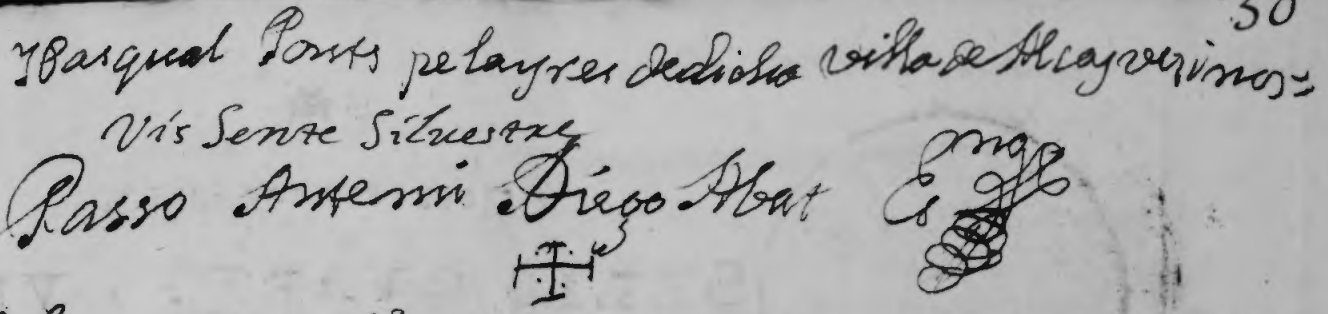 30
y Pasqual Ponts pelayres de dicha villa de Alcoy vezinos=
Vis Sente Silvestre
Passo Antemi Diego Abat Es no